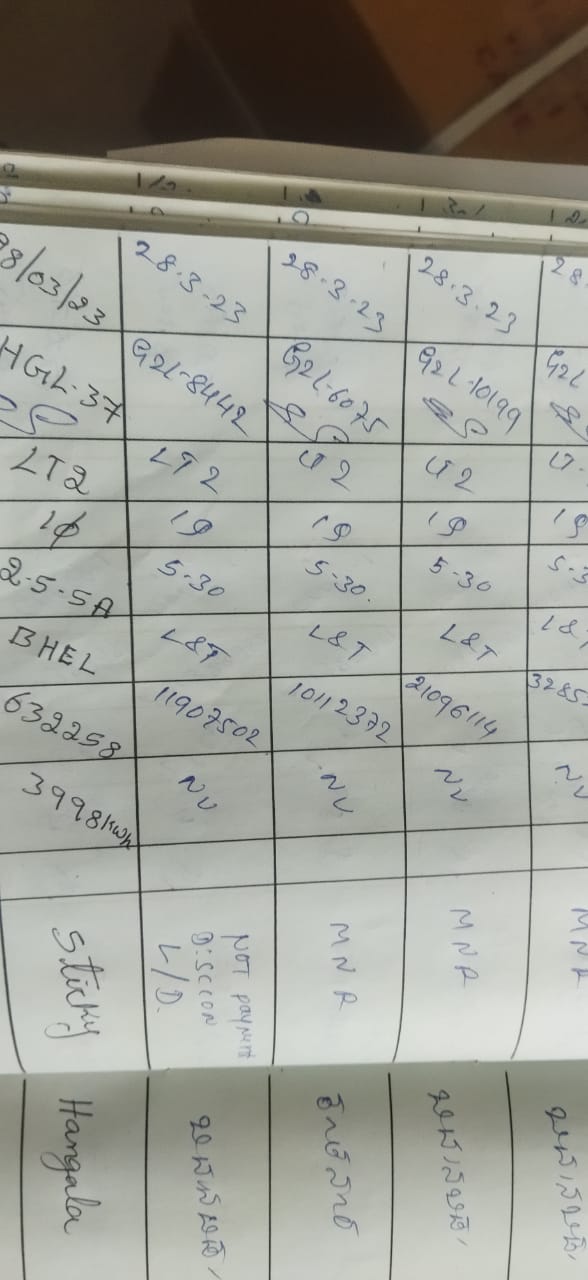 28/03/23
HGL-37
LT2
1ϕ
2.5-5A
BHEL
632258
3998 kwh
Sticky
Hangala
28.3.23
G2L-8442
LT2
1ϕ
5-30
L&T
11907502
NV
NOT payment
Disccon
L/D.
28.3.23
G2L-6075
LT2
1ϕ
5-30.
L&T
10112372
NV
MNR
28.3.23
G2L-10199
LT2
1ϕ
5-30
L&T
21096114
NV
MNR
28.
G2L
LT
1ϕ
5-3
L&T
3285
NV
MNR